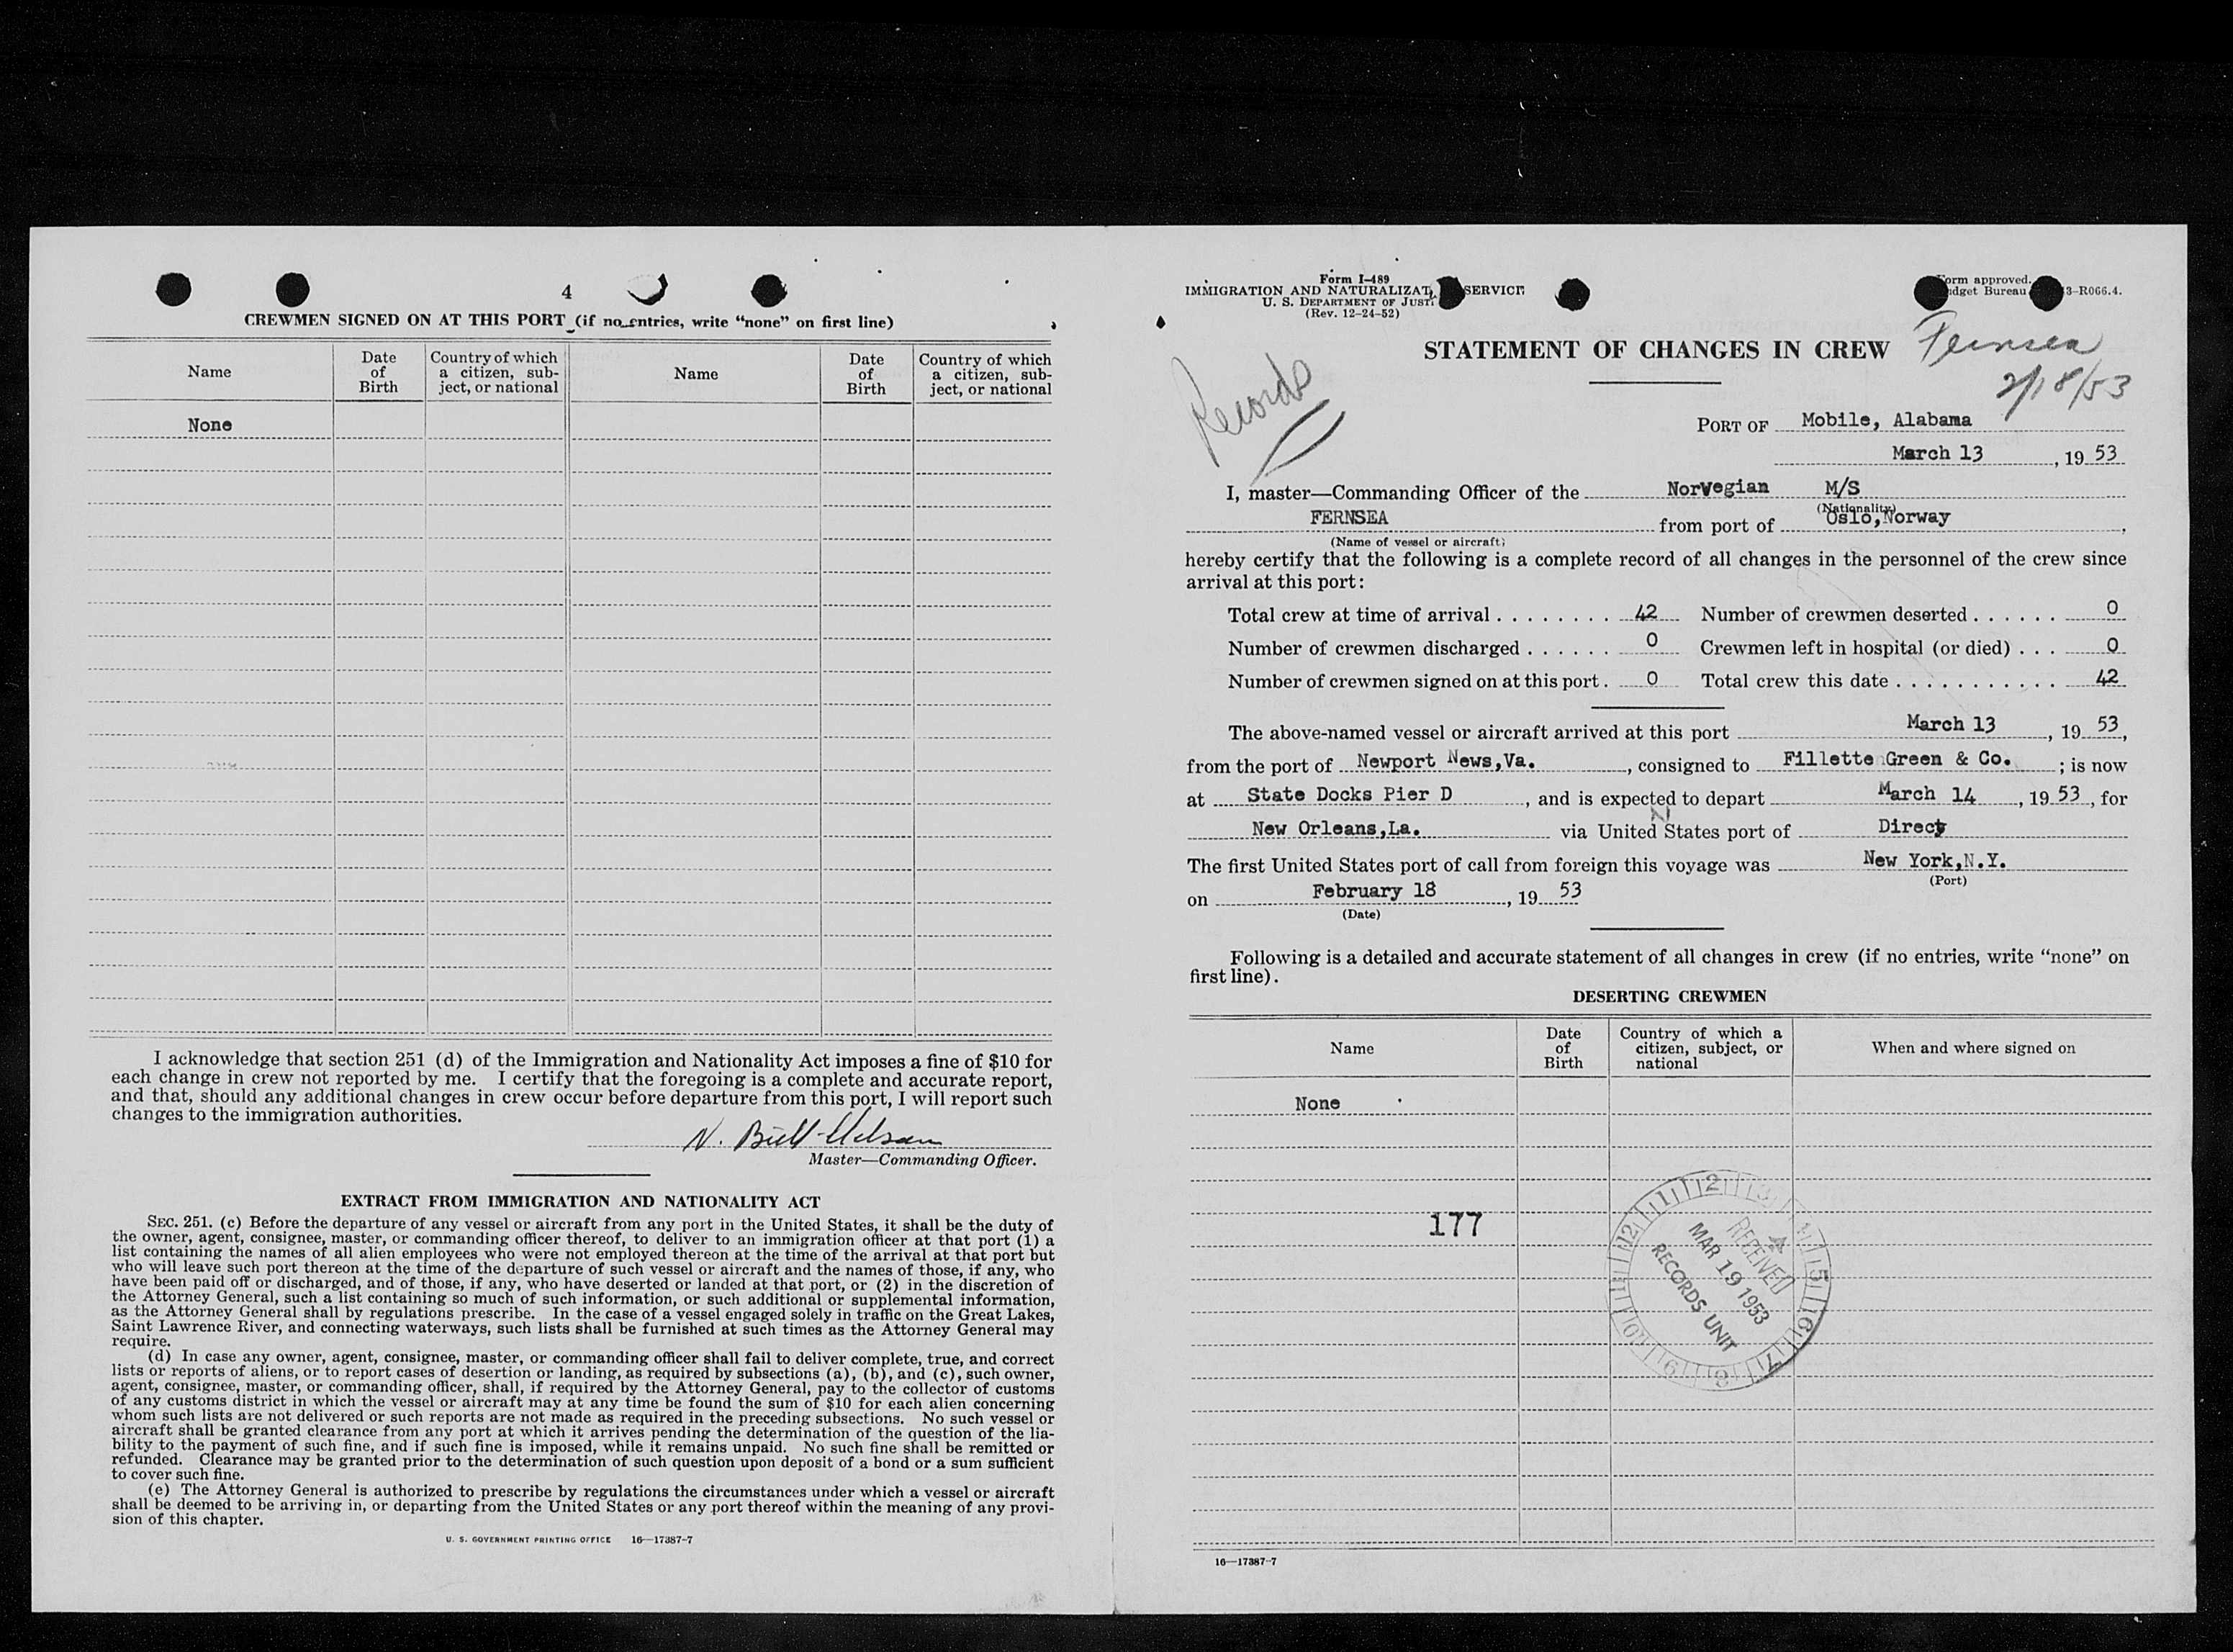 4
CREWMEN SIGNED ON AT THIS PORT (if no entries, write “none” on first line)
Name Date of Birth Country of which a citizen, sub-ject, or national Name Date of Birth Country of which a citizen, sub-ject, or national
None
I acknowledge that section 251 (d) of the Immigration and Nationality Act imposes a fine of $10 for
each change in crew not reported by me. I certify that the foregoing is a complete and accurate report,
and that, should any additional changes in crew occur before departure from this port, I will report such
changes to the immigration authorities.
N.
Master—Commanding Officer.
EXTRACT FROM IMMIGRATION AND NATIONALITY ACT
SEC. 251. (c) Before the departure of any vessel or aircraft from any port in the United States, it shall be the duty of
the owner, agent, consignee, master, or commanding officer thereof, to deliver to an immigration officer at that port (1) a
list containing the names of all alien employees who were not employed thereon at the time of the arrival at that port but
who will leave such port thereon at the time of the departure of such vessel or aircraft and the names of those, if any, who
have been paid off or discharged, and of those, if any, who have deserted or landed at that port, or (2) in the discretion of
the Attorney General, such a list containing so much of such information, or such additional or supplemental information,
as the Attorney General shall by regulations prescribe. In the case of a vessel engaged solely in traffic on the Great Lakes,
Saint Lawrence River, and connecting waterways, such lists shall be furnished at such times as the Attorney General may
require.
(d) In case any owner, agent, consignee, master, or commanding officer shall fail to deliver complete, true, and correct
lists or reports of aliens, or to report cases of desertion or landing, as required by subsections (a), (b), and (c), such owner,
agent, consignee, master, or commanding officer, shall, if required by the Attorney General, pay to the collector of customs
of any customs district in which the vessel or aircraft may at any time be found the sum of $10 for each alien concerning
whom such lists are not delivered or such reports are not made as required in the preceding subsections. No such vessel or
aircraft shall be granted clearance from any port at which it arrives pending the determination of the question of the lia-
bility to the payment of such fine, and if such fine is imposed, while it remains unpaid. No such fine shall be remitted or
refunded. Clearance may be granted prior to the determination of such question upon deposit of a bond or a sum sufficient
to cover such fine.
(e) The Attorney General is authorized to prescribe by regulations the circumstances under which a vessel or aircraft
shall be deemed to be arriving in, or departing from the United States or any port thereof within the meaning of any provi-
sion of this chapter.
U. S. GOVERNMENT PRINTING OFFICE 16—17387-7
Form I-489
IMMIGRATION AND NATURALIZAT SERVICE
U. S. DEPARTMENT OF JUST
(Rev. 12-24-52)
orm approved.
dget Bureau 3-R066.4.
Records
STATEMENT OF CHANGES IN CREW
Fernsea
2/18/53
PORT OF Mobile, Alabama
March 13, 19 53
I, master—Commanding Officer of the Norwegian M/S
(Nationality)
FERNSEA from port of Oslo,Norway,
(Name of vessel or aircraft)
hereby certify that the following is a complete record of all changes in the personnel of the crew since
arrival at this port:
Total crew at time of arrival . . . . . . . . 42 Number of crewmen deserted . . . . . . 0
Number of crewmen discharged . . . . . . 0 Crewmen left in hospital (or died) . . . 0
Number of crewmen signed on at this port . 0 Total crew this date . . . . . . . . . . . 42
The above-named vessel or aircraft arrived at this port March 13, 19 53,
from the port of Newport News,Va., consigned to Fillette Green & Co. ; is now
at State Docks Pier D, and is expected to depart March 14, 19 53, for
New Orleans,La. via United States port of Direct
The first United States port of call from foreign this voyage was New York,N.Y.
(Port)
on February 18, 19 53
(Date)
Following is a detailed and accurate statement of all changes in crew (if no entries, write “none” on
first line).
DESERTING CREWMEN
Name Date of Birth Country of which a citizen, subject, or national When and where signed on
None
177
12 1 2 3 4 5 6 7 8 9 10 11
RECEIVED
MAR 19 1953
RECORDS UNIT
16—17387-7